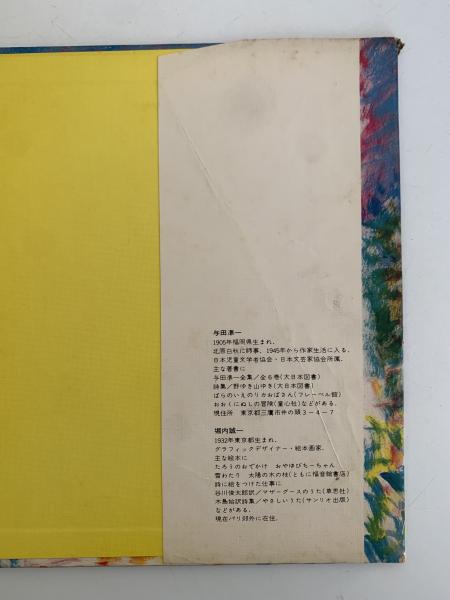 与田凖一
1905年福岡県生まれ。
北原白秋に師事、1945年から作家生活に入る。
日本児童文学者協会・日本文芸家協会所属。
主な著書に
与田凖一全集/全6巻(大日本図書)
詩集/野ゆき山ゆき(大日本図書)
ばらのいえのリカおばさん(フレーベル館)
おおくにぬしの冒険(童心社)などがある。
現住所 東京都三鷹市井の頭3-4-7
堀内誠一
1932年東京都生まれ。
グラフィックデザイナー・絵本画家。
主な絵本に
たろうのおでかけ おやゆびちーちゃん
雪わたり 太陽の木の枝(ともに福音館書店)
詩に絵をつけた仕事に
谷川俊太郎訳/マザーグースのうた(草思社)
木島始訳詩集/やさしいうた(サンリオ出版)
などがある。
現在パリ郊外に在住。